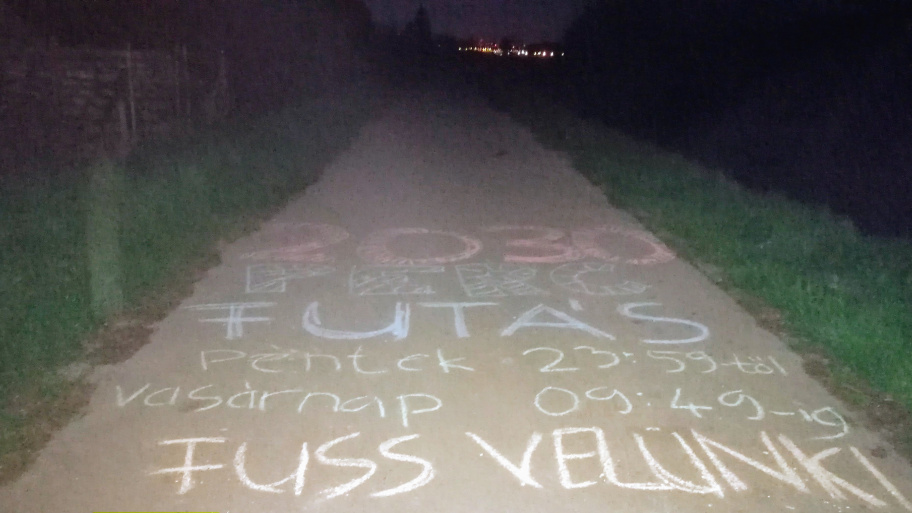 2030
PERC
FUTÁS
Péntek 23:59-től
vasárnap 09:49-ig
FUSS VELÜNK!